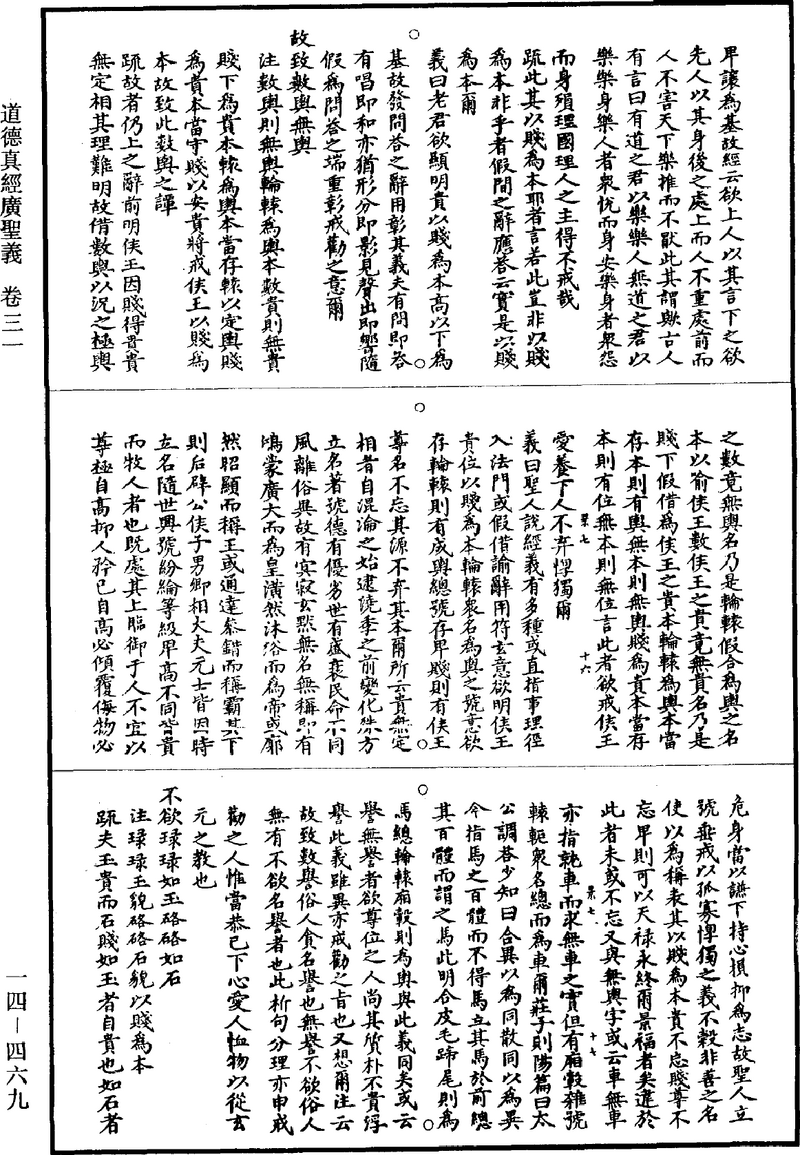 道德真經廣聖義　卷三一
卑讓為基故經云欲上人以其言下之欲
先人以其身後之處上而人不重處前而
人不害天下樂推而不猒此其謂歟古人
有言曰有道之君以樂樂人無道之君以
樂樂身樂人者衆悅而身安樂身者衆怨
而身殞理國理人之主得不戒哉
疏此其以賤為本耶者言若此豈非以賤
為本非乎者假問之辭應荅云實是以賤
為本爾
義曰老君欲顯明貴以賤為本高以下為
基故發問荅之辭用彰其義夫有問即荅
有唱即和亦猶形分即影見聲出即響隨
假為問荅之端重彰戒勸之意爾
故致數輿無輿
注數輿則無輿輪轅為輿本數貴則無貴
賤下為貴本轅為輿本當存轅以定輿賤
為貴本當守賤以安貴將戒侯王以賤為
本故致此數輿之譚
疏故者仍上之辭前明侯王因賤得貴貴
無定相其理難明故借數輿以況之極輿
之數竟無輿名乃是輪轅假合為輿之名
本以喻侯王數侯王之貴竟無貴名乃是
賤下假借為侯王之貴本輪轅為輿本當
存本則有輿無本則無輿賤為貴本當存
本則有位無本則無位言此者欲戒侯王
愛養下人不弃惸獨爾
義曰聖人說經義有多種或直指事理徑
入法門或假借諭辭用符玄意欲明侯王
貴位以賤為本輪轅衆名為輿之號意欲
存輪轅則有成輿總號存卑賤則有侯王
尊名不忘其源不弃其本爾所云貴無定
相者自混淪之始逮澆季之前變化殊方
立名著號德有優劣世有盛衰民命不同
風離俗異故有寂寂玄默無名無稱即有
鴻蒙廣大而為皇潢然沐浴而為帝或廓
然昭顯而稱王或通達叅錯而稱霸其下
則后辟公侯子男卿相大夫元士皆因時
立名隨世興號紛綸等級卑高不同皆貴
而牧人者也既處其上臨御于人不宜以
尊極自高抑人矜已自高必傾覆侮物必
危身當以謙下持心損抑為志故聖人立
號垂戒以孤寡惸獨之義不穀非善之名
使以為稱表其以賤為本貴不忘賤尊不
忘卑則可以天祿永終爾景福者矣違於
此者未或不忘又與無輿字或云車無車
亦指就車而求無車之實但有廂轂雜號
轅軛衆名總而為車爾莊子則陽篇曰太
公調荅少知曰合異以為同散同以為異
今指馬之百體而不得馬立其馬於前總
其百體而謂之馬此明合皮毛蹄尾則為
馬總輪轅廂轂則為輿與此義同矣或云
譽無譽者欲尊位之人尚其質朴不貴浮
譽此義雖異亦戒勸之旨也又想爾注云
故致數譽俗人貪名譽也無譽不欲俗人
無有不欲名譽者也此析句分理亦申戒
勸之人惟當恭已下心愛人恤物以從玄
元之教也
不欲琭琭如玉硌硌如石
注琭琭玉貌硌硌石貌以賤為本
疏夫玉貴而石賤如玉者自貴也如石者
一四－四六九